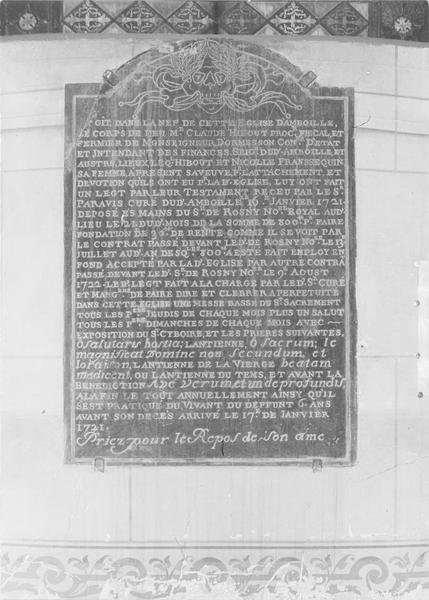 CY GIT DANS LA NEF DE CETTE EGLISE DAMBOILLE,
LE CORPS DE DEFU Mr. CLAUDE HIBOUT PROC. FISCAL ET
FERMIER DE MONSEIGNEUR DORMESSON CON. D'ETAT
ET INTENDANT DES FINANCES, SEIG. DUD. AMBOILLE ET
AUSTRS. LIEUX LEQ. HIBOUT ET NICOLLE FRANSSEQUIN
SA FEMME APRESENT SA VEUVE, P. L'ATTACHEMENT, ET
DEVOTION QU'ILS ONT EU P. LAD. EGLISE, LUY ONT FAIT
UN LEGT PAR LEUR TESTAMENT RECEU PAR LE Sr.
PARAVIS CURE DUD. AMBOILLE 16. JANVIER 1721.
DEPOSE ES MAINS DU Sr. DE ROSNY NOre. ROYAL AUD.
LIEU LE 21 DUD. MOIS DE LA SOMME DE 800 P. FAIRE
FONDATION DE DE RENTE COMME IL SE VOIT PAR
LE CONTRAT PASSE DEVANT LED. DE ROSNY NOre. LE 13
JUILLET AUD. AN DESQ. 800 A ESTE FAIT EMPLOY EN
FOND ACCEPTE PAR LAD. EGLISE PAR AUTRE CONTRA
PASSE DEVANT LED. Sr. DE ROSNY NOre. LE 9. AOUST
1722. LED. LEGT FAIT A LA CHARGE PAR LED. Sr. CURÉ
ET MARG.ers DE FAIRE DIRE ET CLEBRER A PERPETUITE
DANS CETTE EGLISE UNE MESSE BASSE DU St. SACREMENT
TOUS LES P.ers JEUDIS DE CHAQUE MOIS PLUS UN SALUT
TOUS LES P.ers DIMANCHES DE CHAQUE MOIS AVEC
EXPOSITION DU St. CYBOIRE, ET LES PRIERES SUIVANTES,
O salutaris hostia; LANTIENNE, O Sacrum; le
magnificat Domine non Secundum, et
loraison, LANTIENNE DE LA VIERGE beatam
me dicent, OU LANTIENNE DU TEMS, ET AVANT LA
BENEDICTION Ave verum, et un de profundis,
ALAFIN LE TOUT ANNUELLEMENT AINSY QU'IL
SEST PRATIQUE DU VIVANT DU DEFFUNT 6 ANS
AVANT SON DECES ARRIVE LE 17. DE JANVIER
1721.
Priez pour le Repos de son ame